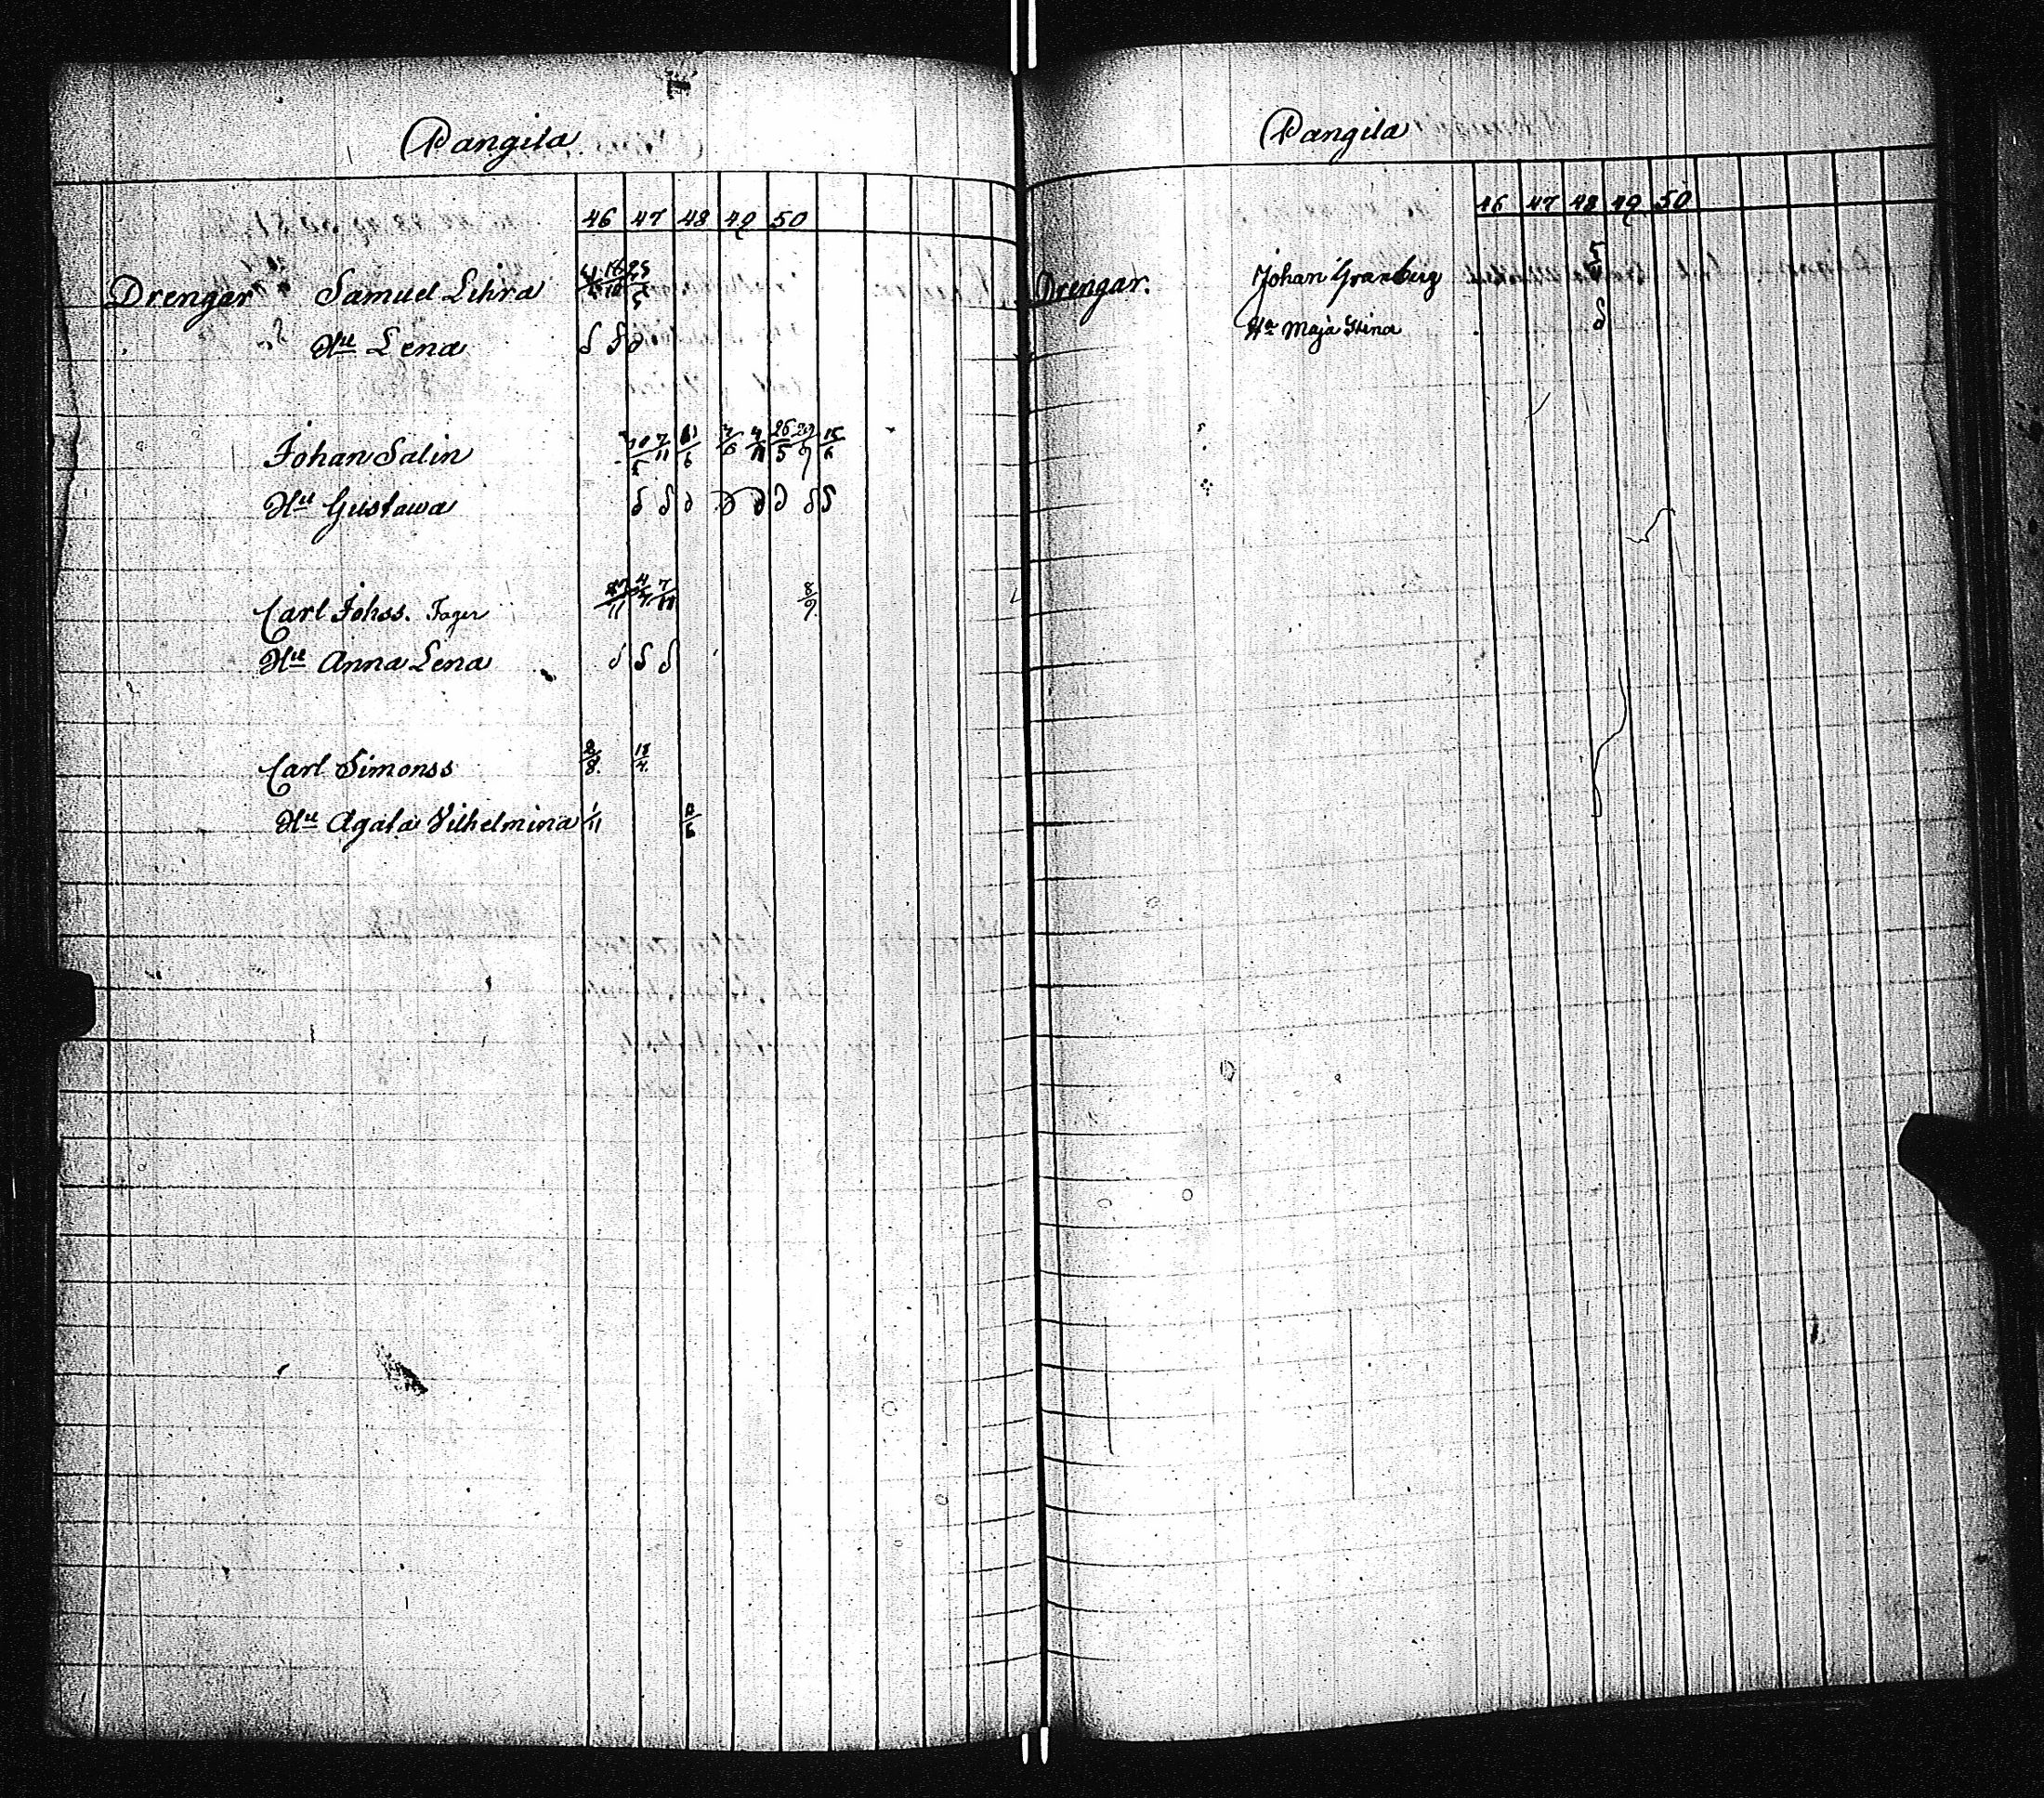 Pangila
46 47 48 49 50
Drengar Samuel Lihra
Hu Lena δ δ δ
Johan Salin 7/11 26/5 15/6
Hu Gustawa δ δ δ δ δ δ δ δ
Carl Johss. Fager 4/7 7/11 8/9
Hu Anna Lena δ δ δ
Carl Simonss 2/8. 18/4.
Hu Agata Vilhelmina 1/11
Pangila
46 47 48 49 50
Drengar. Johan Granberg
Hu Maja Stina δ